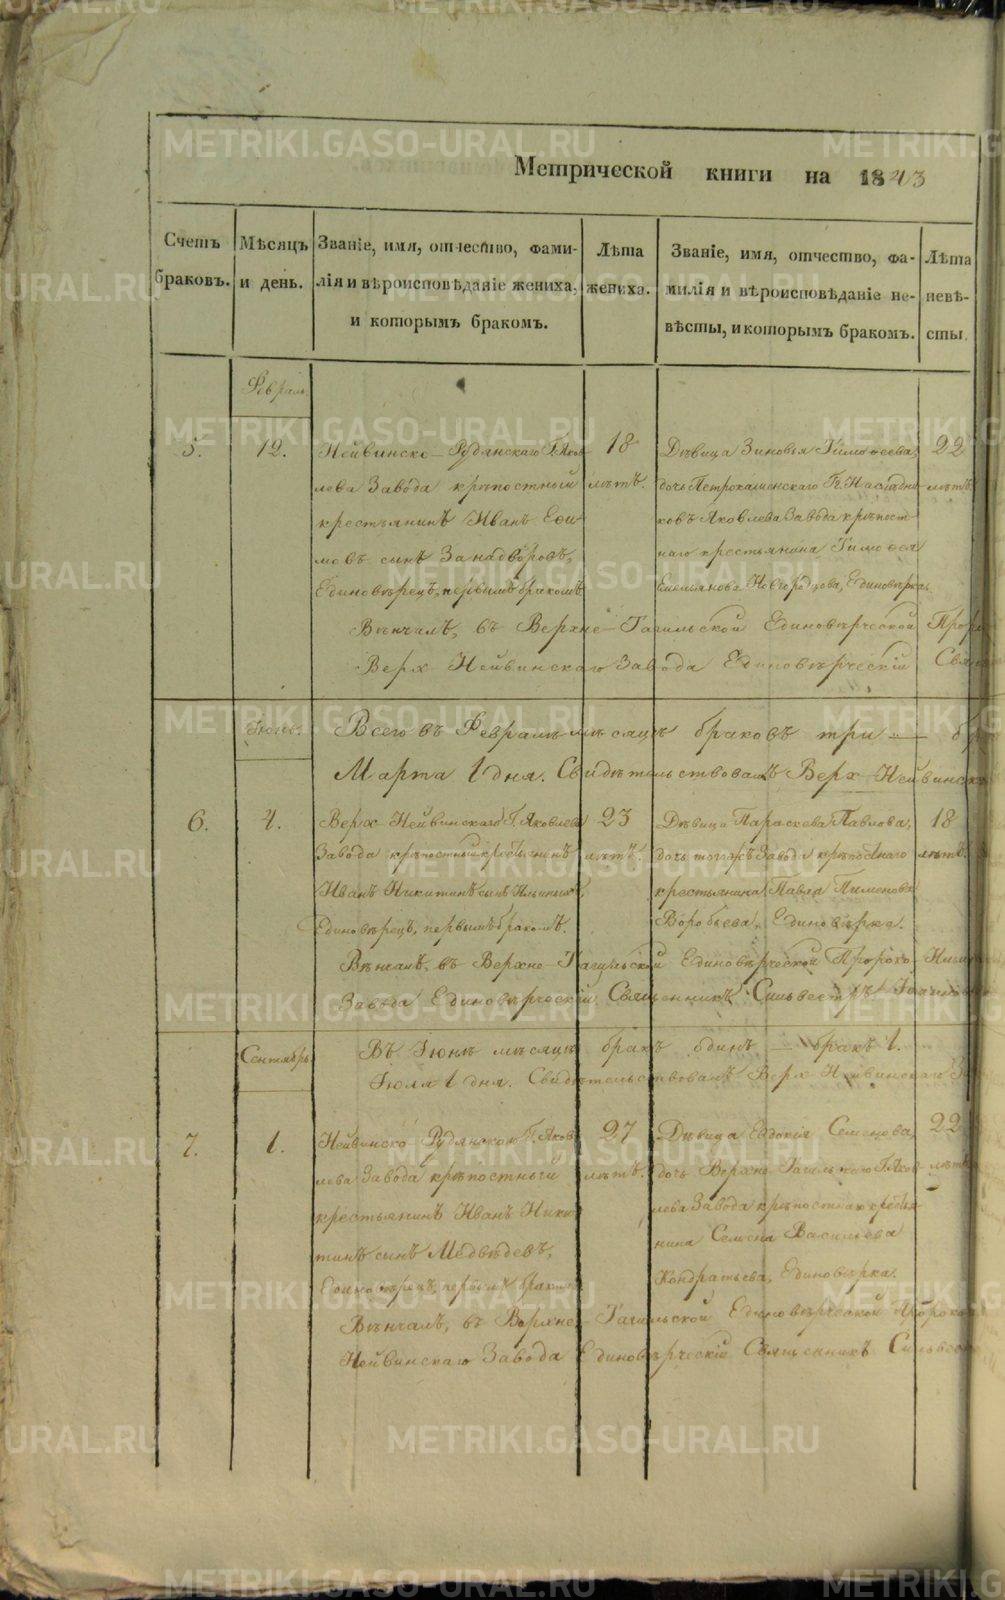 Метрической книги на 1843
Счетъ браковъ.
Мѣсяцъ и день.
Званіе, имя, отчество, фами-
лія и вѣроисповѣданіе жениха,
и которымъ бракомъ.
Лѣта жениха.
Званіе, имя, отчество, фа-
милія и вѣроисповѣданіе не-
вѣсты, и которымъ бракомъ.
Лѣта невѣ-
сты.
Февраль
5. 12.
Нейвинско-Рудянскаго Г. Яков-
лева Завода крѣпостный
крестьянинъ Иванъ Ефи-
мовъ сынъ Занадворовъ,
Единовѣрецъ, первымъ бракомъ
18
лѣтъ.
Дѣвица Зиновья Тимоѳеева,
дочь Петрокаменскаго Гг. Наслѣдни-
ковъ Яковлева Завода крѣпост-
наго крестьянина Тимоѳея
Емельянова Новгородцова, Единовѣрка.
22
лѣтъ
Вѣнчалъ, въ Верхне-Тагильской Единовѣрческой Проро
Верх Нейвинскаго Завода Единовѣрческій Свя
Іюнь.
Всего въ Февралѣ мѣсяцѣ браковъ три — бр
Марта 1 дня. Свидѣтельствовалъ Верх-Нейвинск
6. 4.
Верх-Нейвинскаго Г. Яковлева
Завода крѣпостный крестьянинъ
Иванъ Никитинъ сынъ Ильиныхъ,
Единовѣрецъ, первымъ бракомъ.
23
лѣтъ.
Дѣвица Параскева Павлова,
дочь тогожъ Завода крѣпостнаго
крестьянина Павла Пименова
Воробьева, Единовѣрка.
18
лѣтъ.
Вѣнчалъ, въ Верхне-Тагильской Единовѣрческой Пророко-Ильи
Завода Единовѣрческій Священникъ Сильвестръ
Сентябрь
Въ Іюнѣ мѣсяцѣ бракъ одинъ — бракъ 1.
Іюля 1 дня. Свидѣтельствовалъ Верх-Нейвинскаго За
7. 1.
Нейвинско Рудянскаго Г. Яков-
лева Завода крѣпостный
крестьянинъ Иванъ Ники-
тинъ сынъ Медвѣдевъ,
Единовѣрецъ, первымъ бракомъ
27
лѣтъ.
Дѣвица Евдокія Семенова,
дочь Верхне-Тагильскаго Г. Яков-
лева Завода крѣпостнаго крестья-
нина Семена Васильева
Кондратьева, Единовѣрка.
22
лѣтъ
Вѣнчалъ, въ Верхне-Тагильской Единовѣрческой Пророко
Нейвинскаго Завода Единовѣрческій Священникъ Сильвес
METRIKI.GASO-URAL.RU